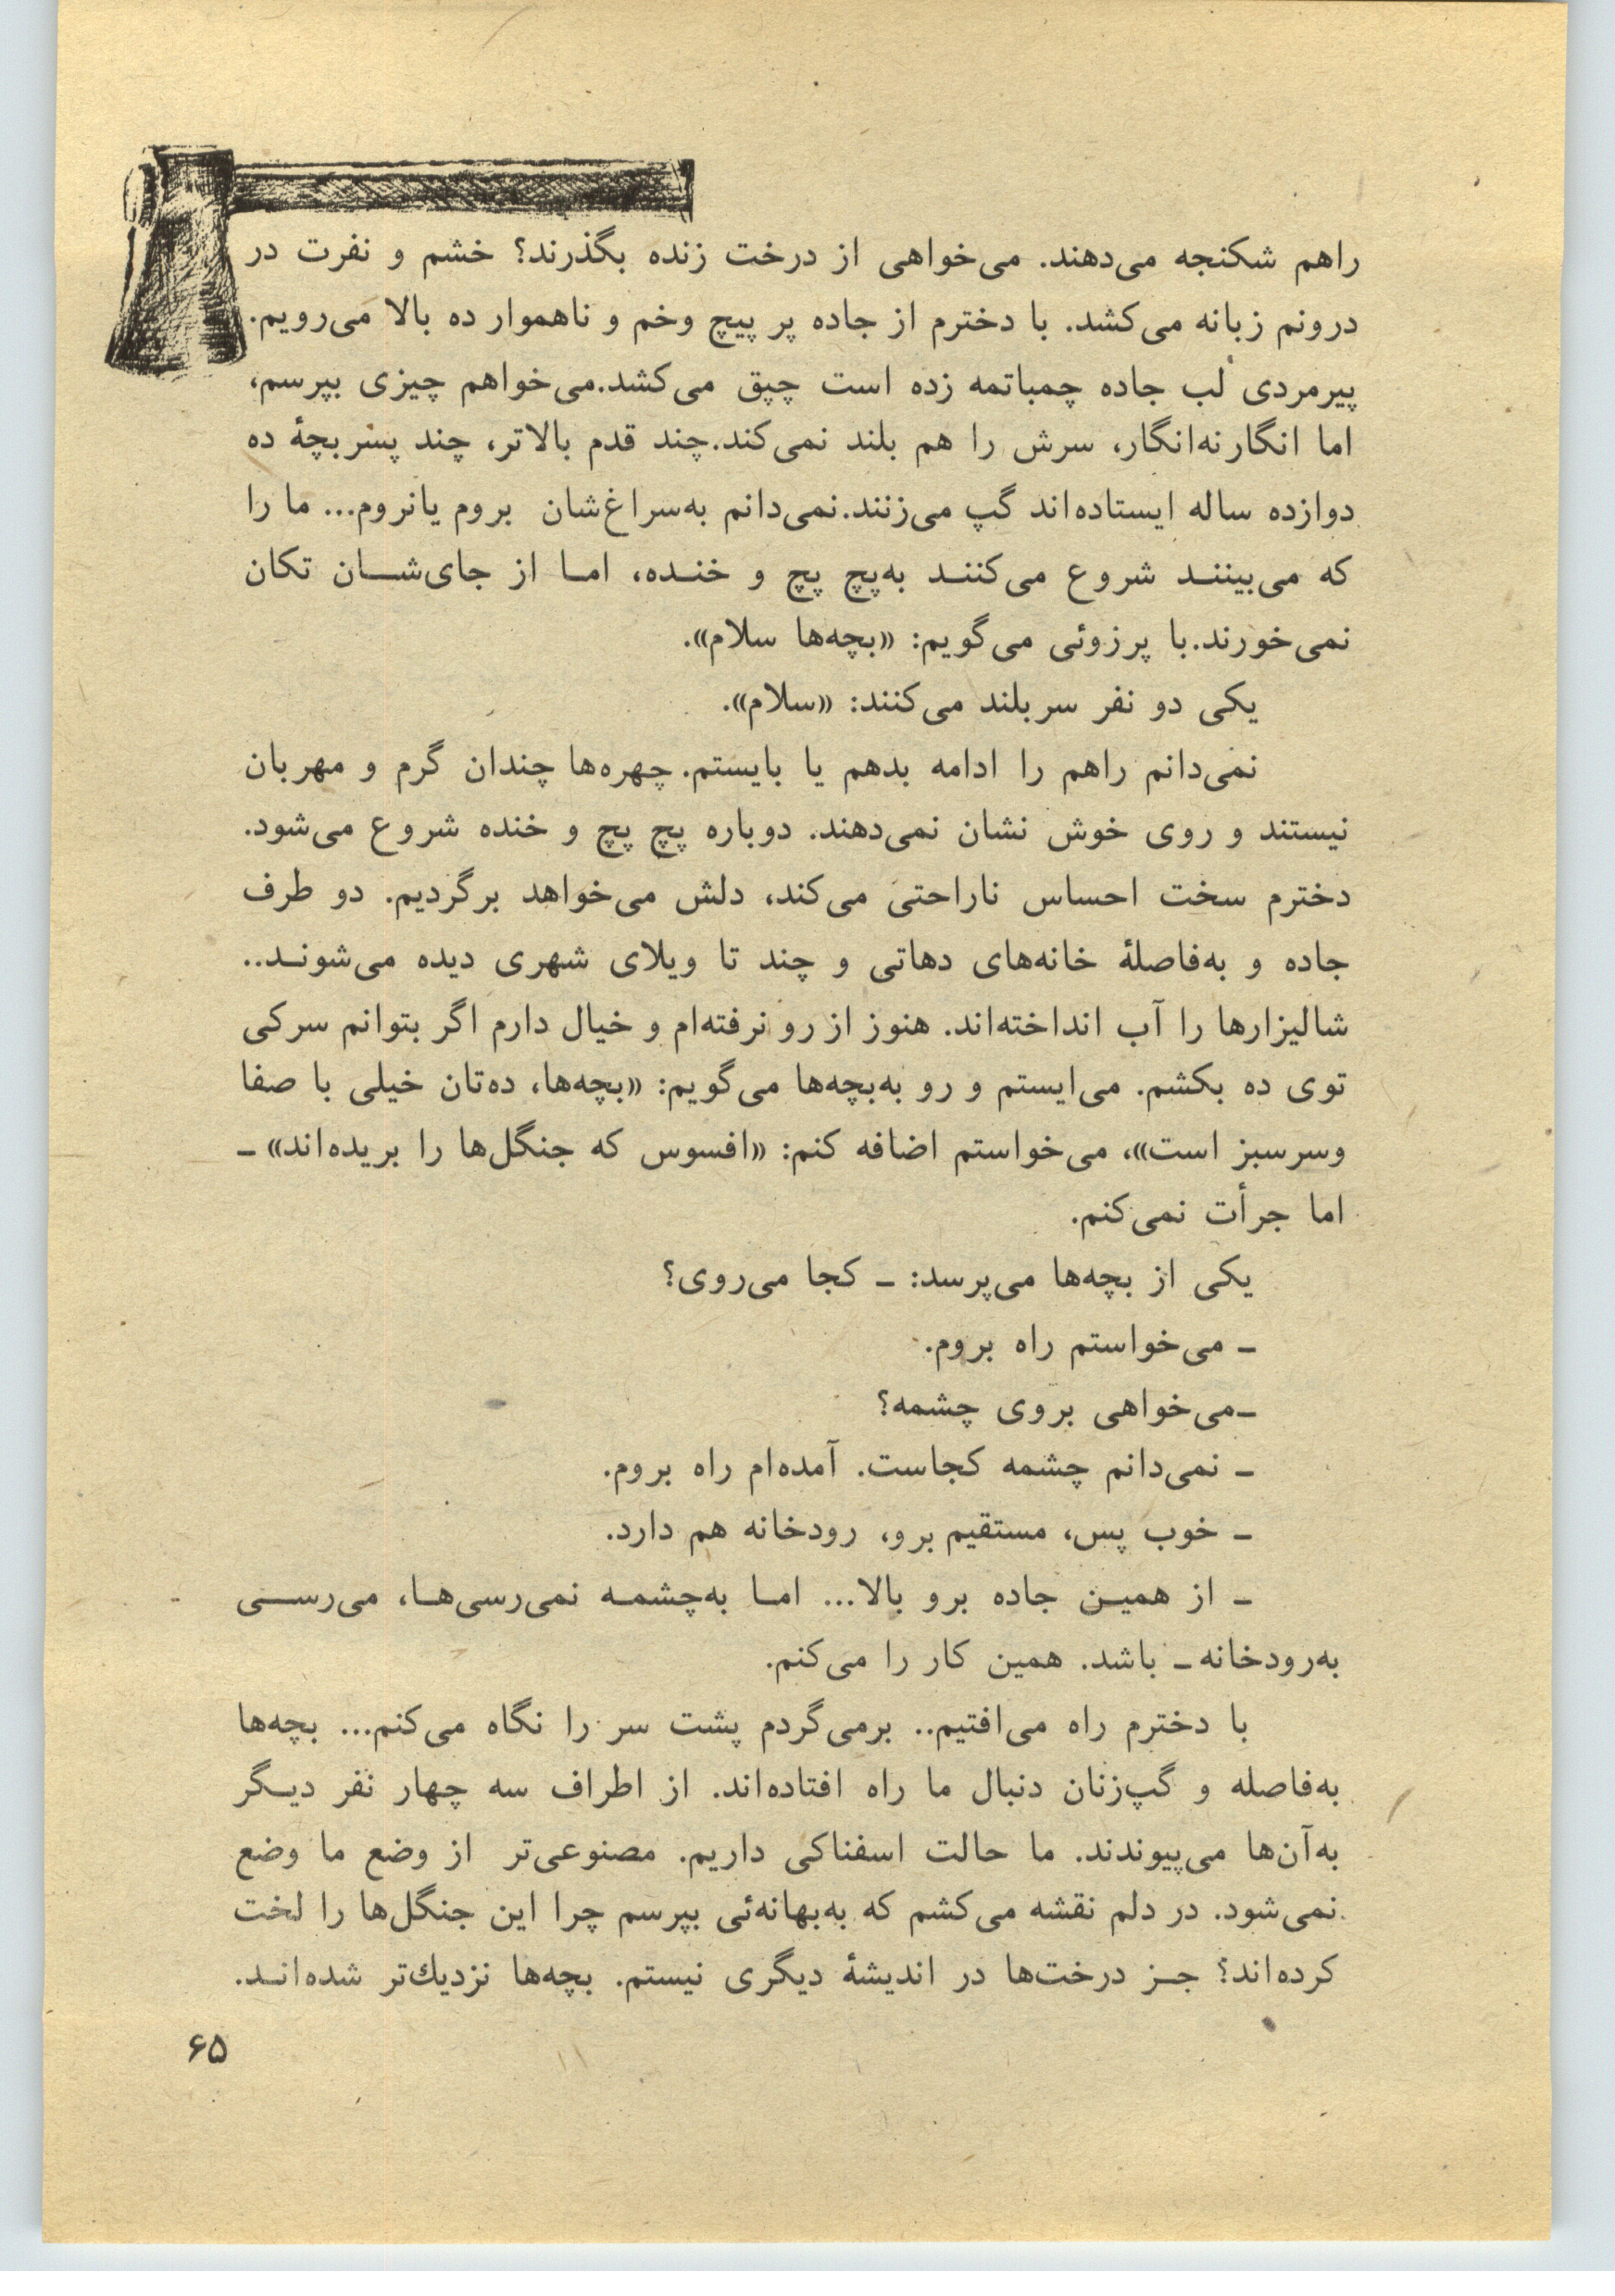 راهم شکنجه می‌دهند. می‌خواهی از درخت زنده بگذرند؟ خشم و نفرت در
درونم زبانه می‌کشد. با دخترم از جاده پر پیچ وخم و ناهموار ده بالا می‌رویم.
پیرمردی لب جاده چمباتمه زده است چپق می‌کشد.می‌خواهم چیزی بپرسم،
اما انگارنه‌انگار، سرش را هم بلند نمی‌کند.چند قدم بالاتر، چند پسربچهٔ ده
دوازده ساله ایستاده‌اند گپ می‌زنند.نمی‌دانم به‌سراغ‌شان بروم یانروم... ما را
که می‌بینند شروع می‌کنند به‌پچ پچ و خنده، اما از جای‌شان تکان
نمی‌خورند.با پرزوئی می‌گویم: «بچه‌ها سلام».
یکی دو نفر سربلند می‌کنند: «سلام».
نمی‌دانم راهم را ادامه بدهم یا بایستم. چهره‌ها چندان گرم و مهربان
نیستند و روی خوش نشان نمی‌دهند. دوباره پچ پچ و خنده شروع می‌شود.
دخترم سخت احساس ناراحتی می‌کند، دلش می‌خواهد برگردیم. دو طرف
جاده و به‌فاصلهٔ خانه‌های دهاتی و چند تا ویلای شهری دیده می‌شوند..
شالیزارها را آب انداخته‌اند. هنوز از رو نرفته‌ام و خیال دارم اگر بتوانم سرکی
توی ده بکشم. می‌ایستم و رو به‌بچه‌ها می‌گویم: «بچه‌ها، ده‌تان خیلی با صفا
وسرسبز است»، می‌خواستم اضافه کنم: «افسوس که جنگل‌ها را بریده‌اند» ـ
اما جرأت نمی‌کنم.
یکی از بچه‌ها می‌پرسد: ـ کجا می‌روی؟
ـ می‌خواستم راه بروم.
ـ‌می‌خواهی بروی چشمه؟
ـ نمی‌دانم چشمه کجاست. آمده‌ام راه بروم.
ـ خوب پس، مستقیم برو، رودخانه هم دارد.
ـ از همین جاده برو بالا... اما به‌چشمه نمی‌رسی‌ها، می‌رسی
به‌رودخانه ـ باشد. همین کار را می‌کنم.
با دخترم راه می‌افتیم.. برمی‌گردم پشت سر را نگاه می‌کنم... بچه‌ها
به‌فاصله و گپ‌زنان دنبال ما راه افتاده‌اند. از اطراف سه چهار نفر دیگر
به‌آن‌ها می‌پیوندند. ما حالت اسفناکی داریم. مصنوعی‌تر از وضع ما وضع
نمی‌شود. در دلم نقشه می‌کشم که به‌بهانه‌ئی بپرسم چرا این جنگل‌ها را لخت
کرده‌اند؟ جز درخت‌ها در اندیشهٔ دیگری نیستم. بچه‌ها نزدیك‌تر شده‌اند.
۶۵